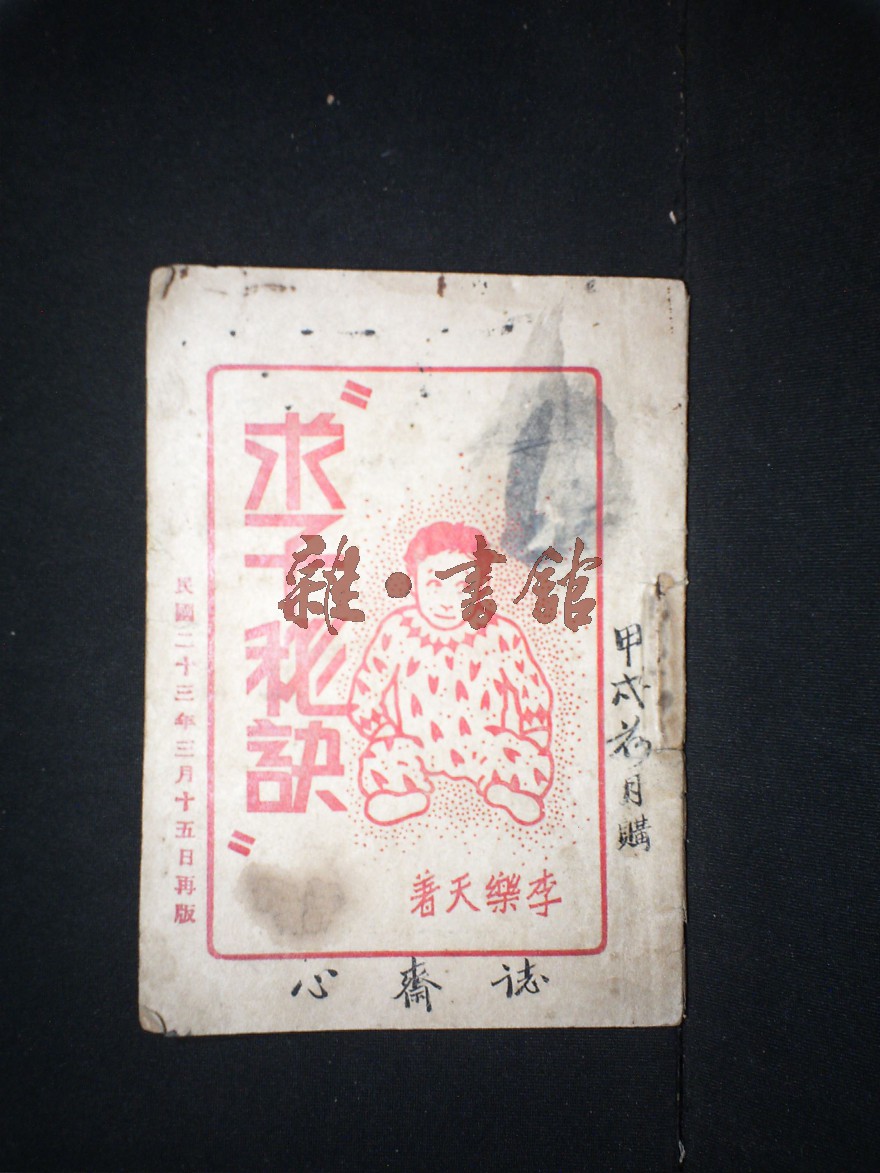 甲戌荷月購
李樂天著
"求子秘訣"
民國二十三年三月十五日再版
心齋誌
雜·書館